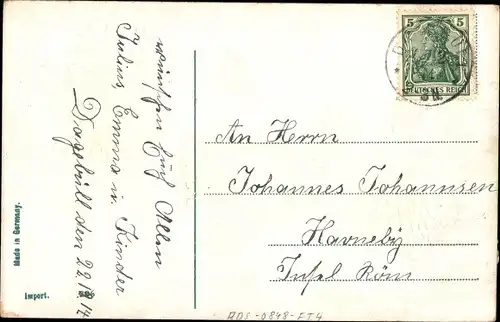 5 5
DEUTSCHES REICH
wünschen Euch Allen
Julius, Emma u Kinder
Dagebüll den 22.12.14
An Herrn
Johannes Johannsen
Havneby
Insel Röm
Made in Germany.
Import.
ADS-0848-FT4